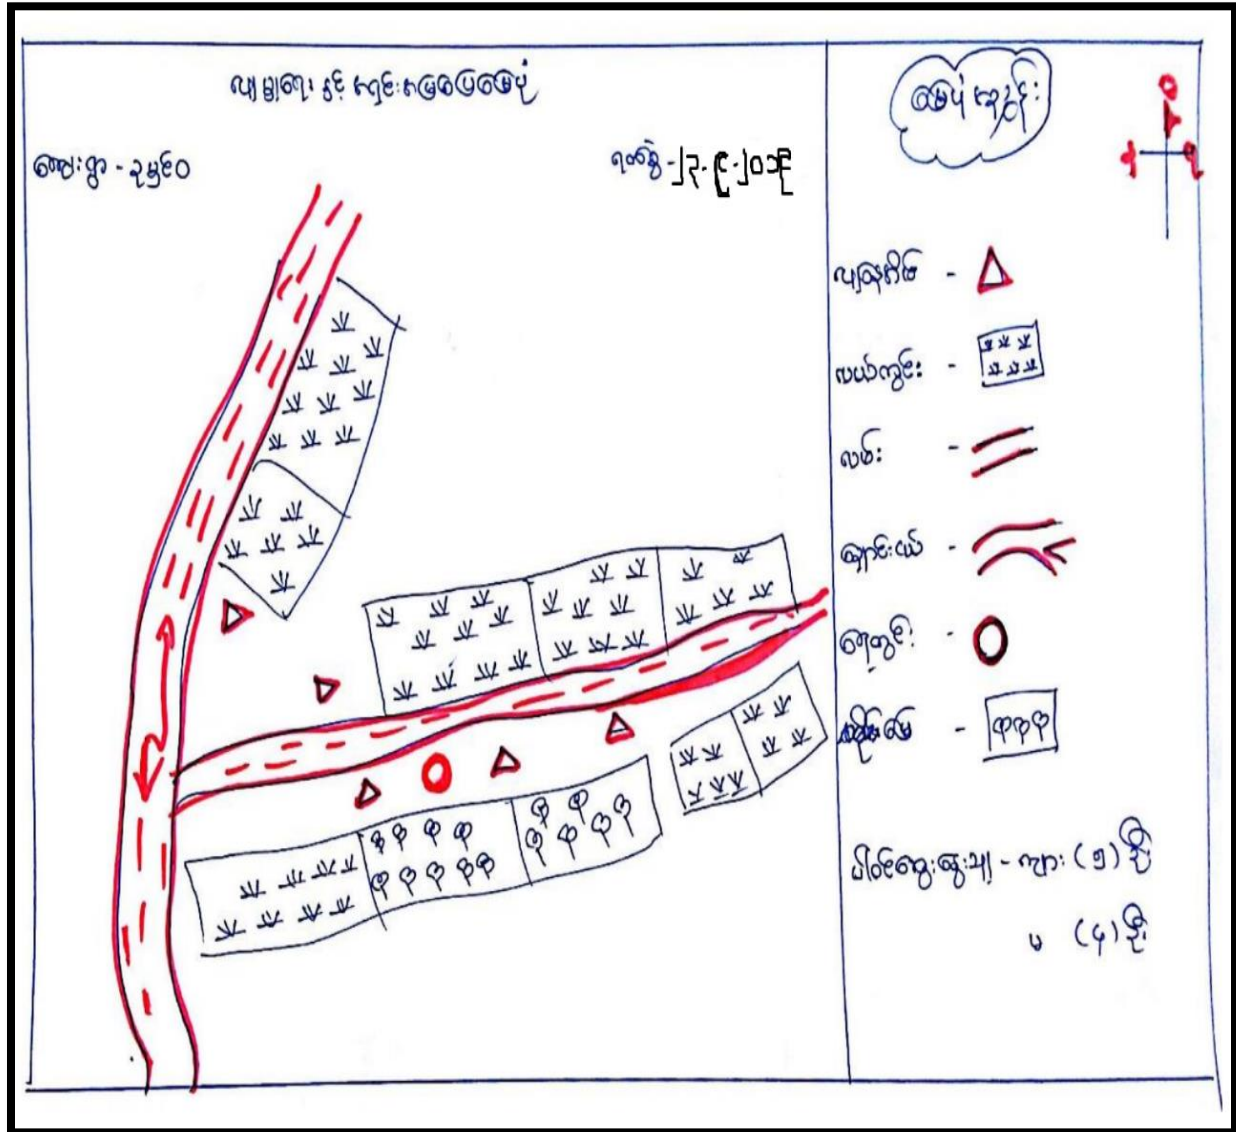 လူမှုရေး နှင့် ရင်းမြစ်ပြမြေပုံ
ကျေးရွာ -
ရက်စွဲ - ၂၃-၉-၂၀၁၉
မြေပုံညွှန်း
လူနေအိမ် -
လယ်ကွင်း -
လမ်း -
ချောင်းငယ် -
ရေတွင်း -
မြေ -
ပါဝင်ဆွေးနွေးသူ - ကျား (၅) ဦး
မ (၄) ဦး